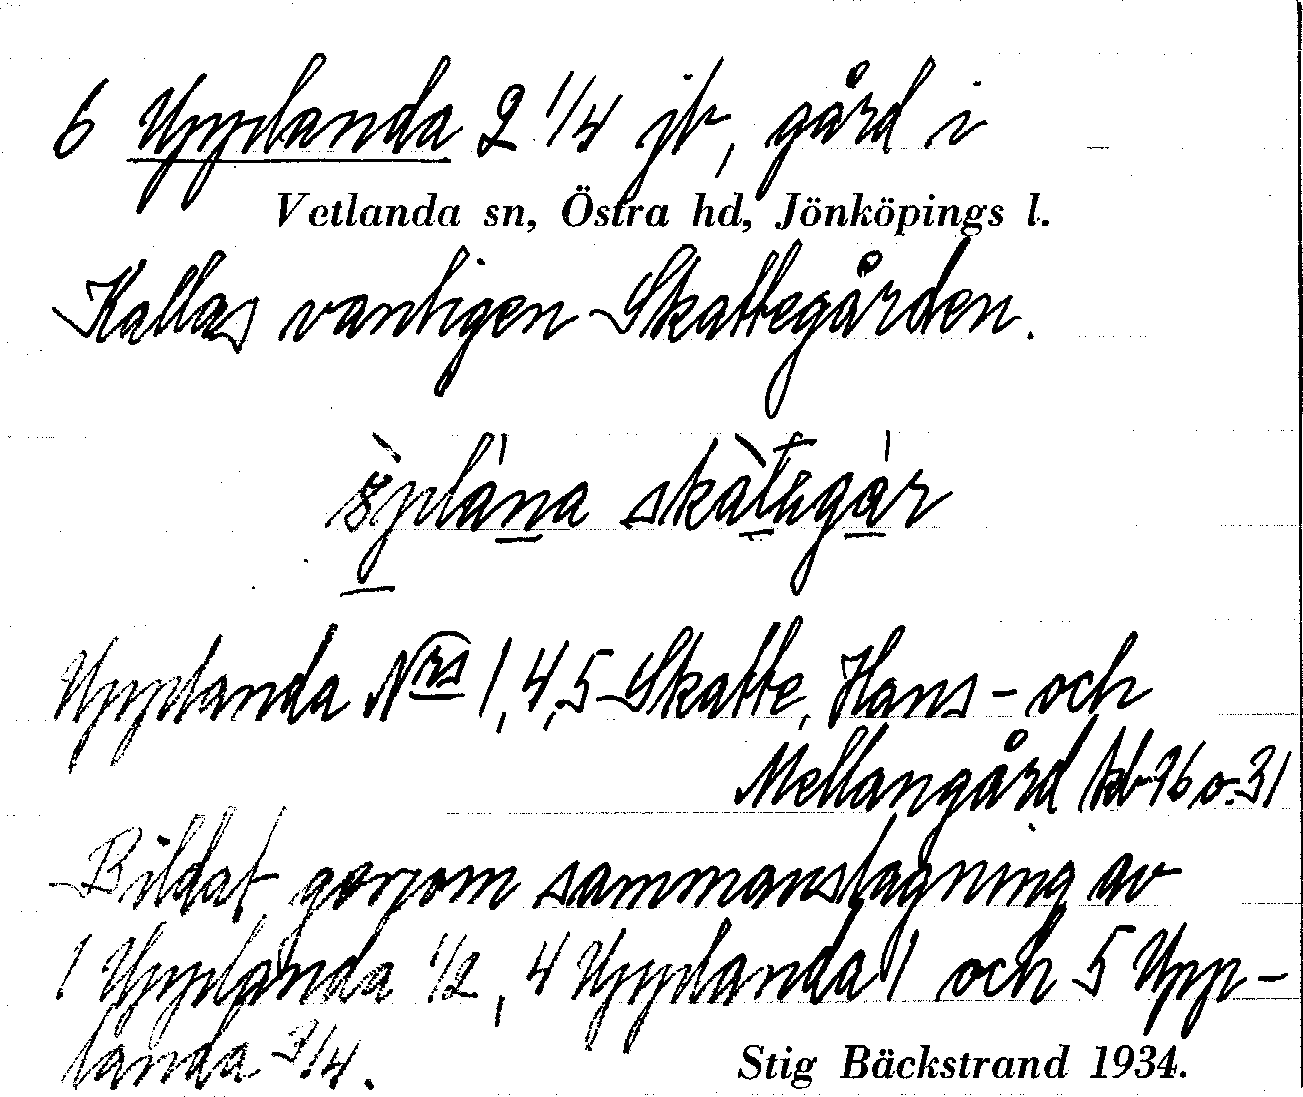 6 Upplanda 2 1/4 jb, gård i
Vetlanda sn, Östra hd, Jönköpings l.
Kallas vanligen Skattegården.
skategar
Upplanda Nrs 1, 4, 5 Skatte, Hans- och
Mellangård kb 96 o. 31
Bildat genom sammanslagning av
1 Upplanda 1/2, 4 Upplanda 1 och 5 Upp-
landa 3/4.
Stig Bäckstrand 1934.